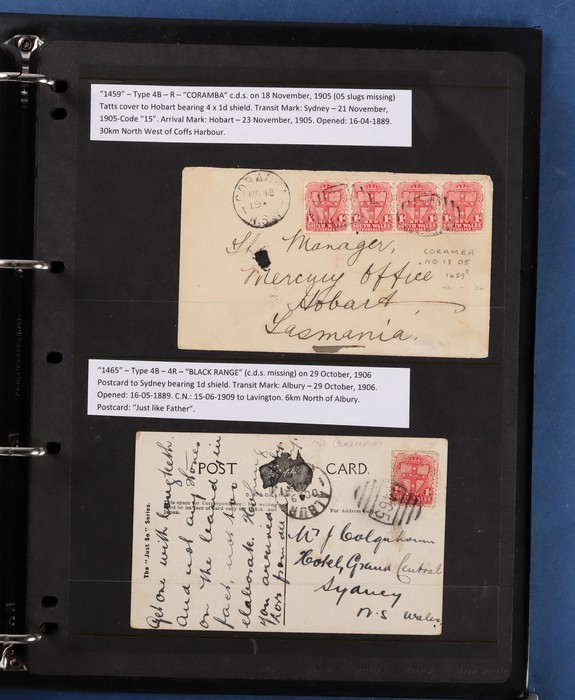 "1459" – Type 4B – R – "CORAMBA" c.d.s. on 18 November, 1905 (05 slugs missing)
Tatts cover to Hobart bearing 4 x 1d shield. Transit Mark: Sydney – 21 November,
1905-Code "15". Arrival Mark: Hobart – 23 November, 1905. Opened: 16-04-1889.
30km North West of Coffs Harbour.
CORAMBA
NO 18
19
N.S.W
SOUTH WALES SOUTH WALES SOUTH WALES SOUTH WALES
The Manager,
Mercury Office
Hobart
Tasmania.
CORAMBA
NO 18 05
1459
"1465" – Type 4B – 4R – "BLACK RANGE" (c.d.s. missing) on 29 October, 1906
Postcard to Sydney bearing 1d shield. Transit Mark: Albury – 29 October, 1906.
Opened: 16-05-1889. C.N.: 15-06-1909 to Lavington. 6km North of Albury.
Postcard: "Just like Father".
POST CARD.
The "Just So" Series.
For Address
ALBURY
1465
Get one with teeth.
And not any stones
on the leaded in
fact, not too
elaborate.
you arrived
Mr J Colquhoun
Hotel, Grand Central
Sydney
N.S Wales